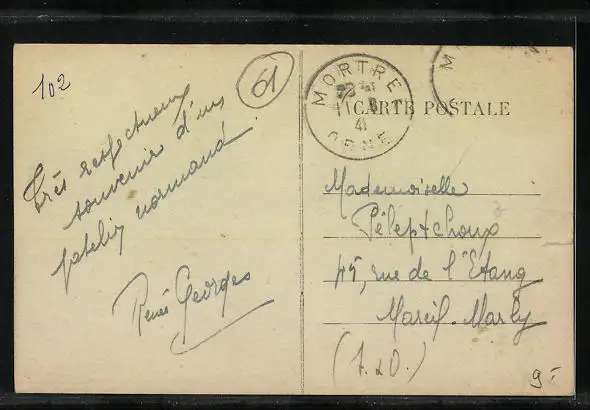 102
61
Très respectueux
souvenir d'un
patelin normand
René Georges
MORTRÉE
41
ORNE
CARTE POSTALE
M
Mademoiselle
45, rue de l'Etang
Mareil-Marly
(S.&O.)
9.-